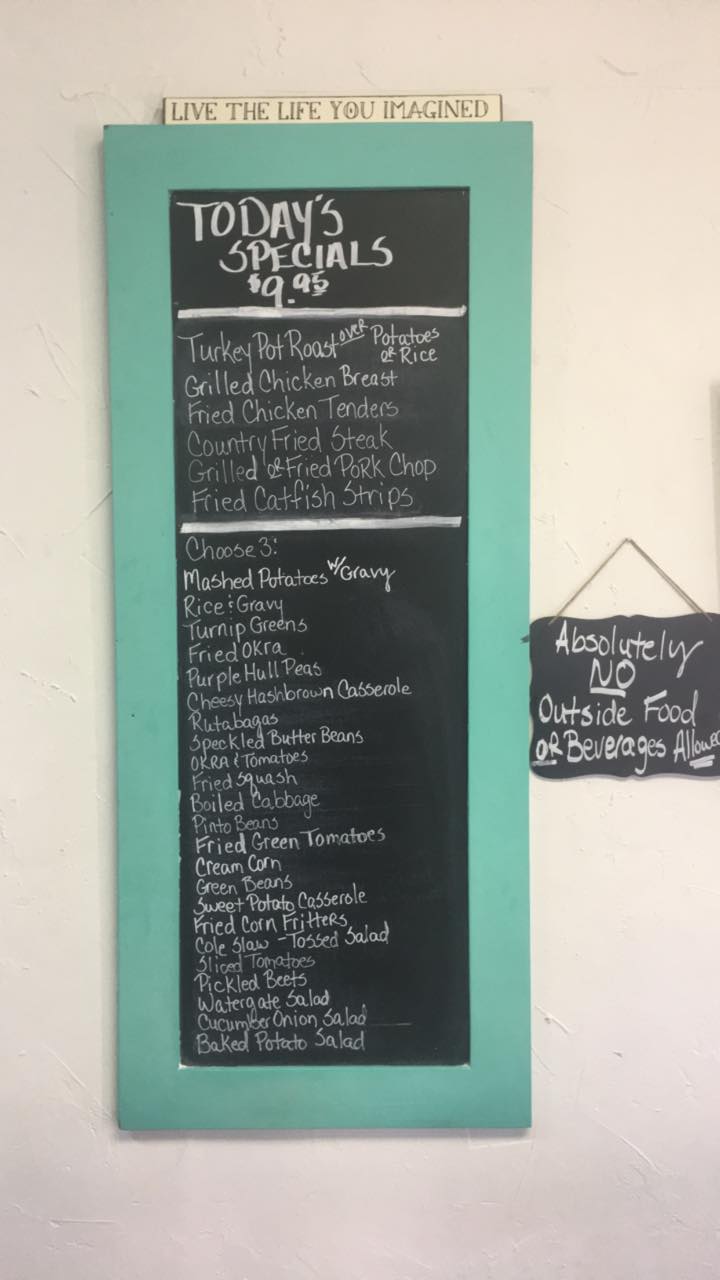 LIVE THE LIFE YOU IMAGINED
TODAY'S
SPECIALS
$9.95
Turkey Pot Roast over Potatoes
or Rice
Grilled Chicken Breast
Fried Chicken Tenders
Country Fried Steak
Grilled or Fried Pork Chop
Fried Catfish Strips
Choose 3:
Mashed Potatoes w/Gravy
Rice & Gravy
Turnip Greens
Fried Okra
Purple Hull Peas
Cheesy Hashbrown Casserole
Rutabagas
Speckled Butter Beans
OKRA & Tomatoes
Fried Squash
Boiled Cabbage
Pinto Beans
Fried Green Tomatoes
Cream Corn
Green Beans
Sweet Potato Casserole
Fried Corn Fritters
Cole Slaw - Tossed Salad
Sliced Tomatoes
Pickled Beets
Watergate Salad
Cucumber Onion Salad
Baked Potato Salad
Absolutely
NO
Outside Food
or Beverages Allowed